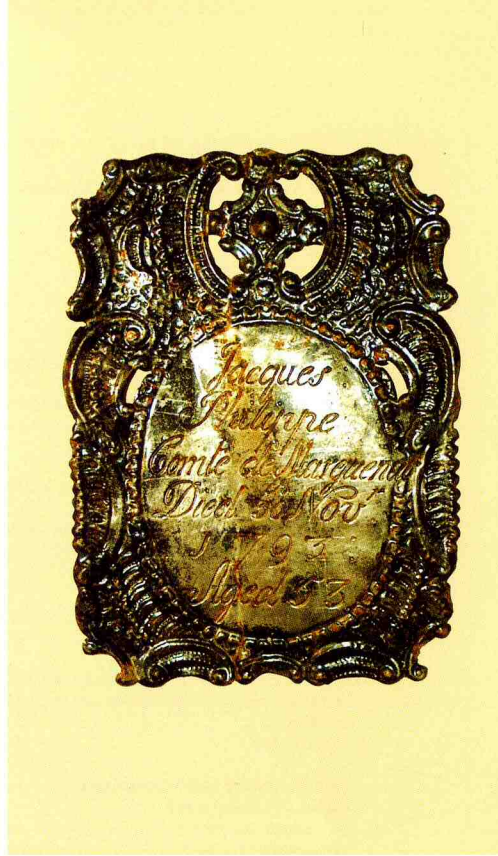 Jacques
Philippe
Comte de Marguenat
Died Nov.r
179
Aged 53